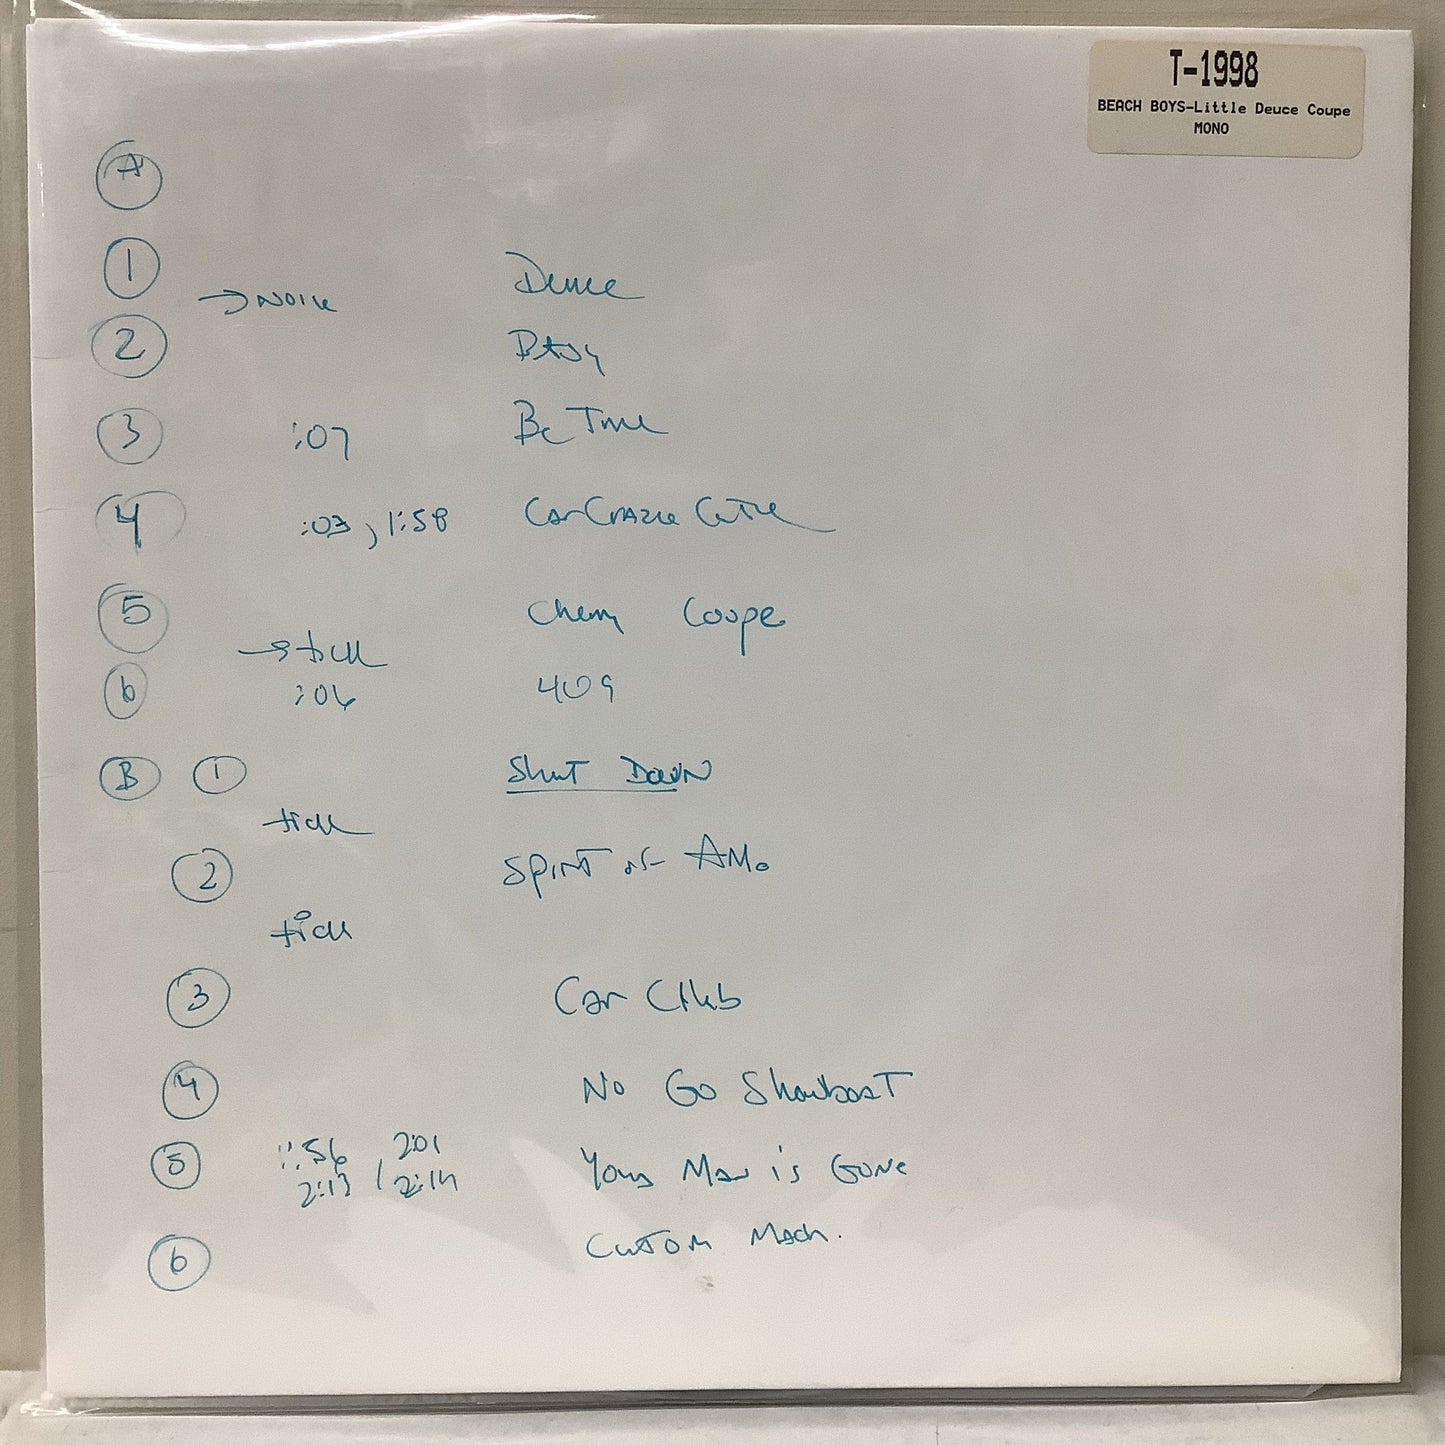 T-1998
BEACH BOYS-Little Deuce Coupe
MONO
A
1 Deuce
→ Noise
2 Betsy
3 :07 Be True
4 :03, 1:58 Car Crazie Cutie
5 Cherry Coupe
→ tick
6 :06 409
B 1 Shut Down
tick
2 Spirit of Am.
tick
3 Car Club
4 No Go Showboat
5 :56, 2:01 Your Man is Gone
2:13, 2:14
6 Custom Mach.